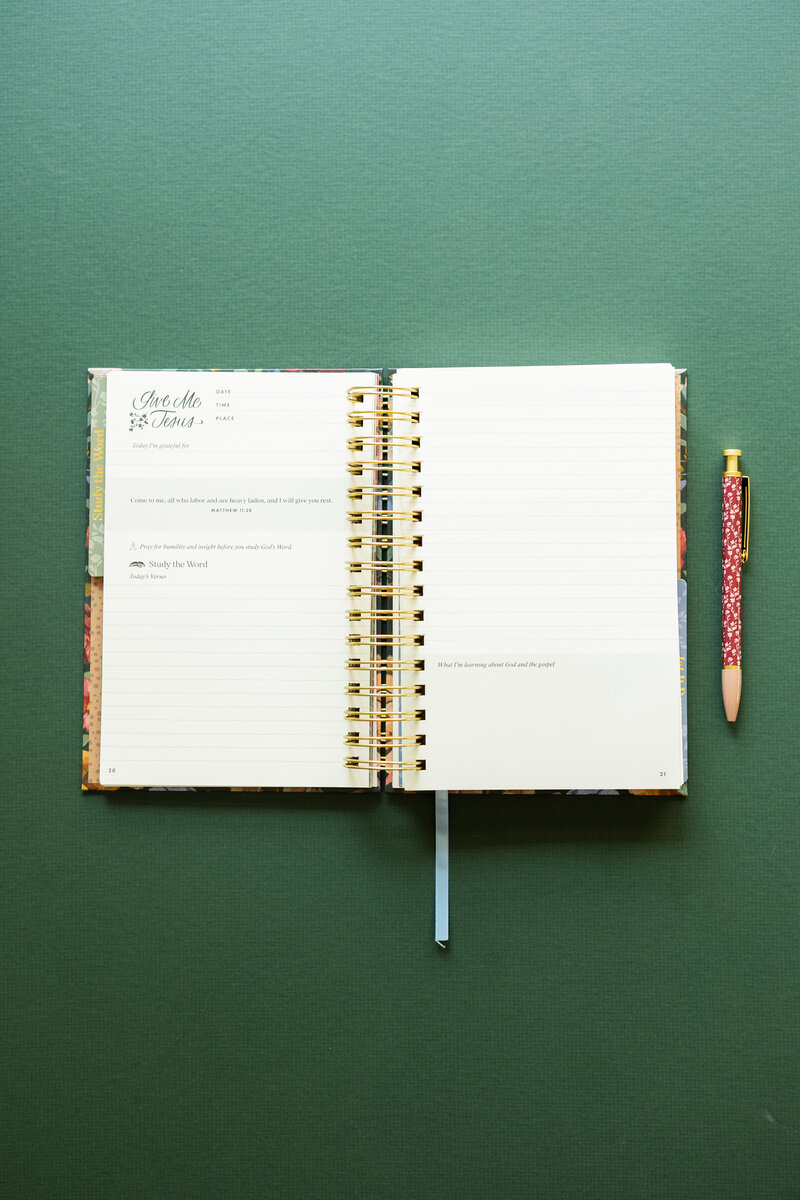 Give Me
Jesus
DATE
TIME
PLACE
Today I'm grateful for
Study the Word
Come to me, all who labor and are heavy laden, and I will give you rest.
MATTHEW 11:28
Pray for humility and insight before you study God's Word.
Study the Word
Today's Verses
20
What I'm learning about God and the gospel
21